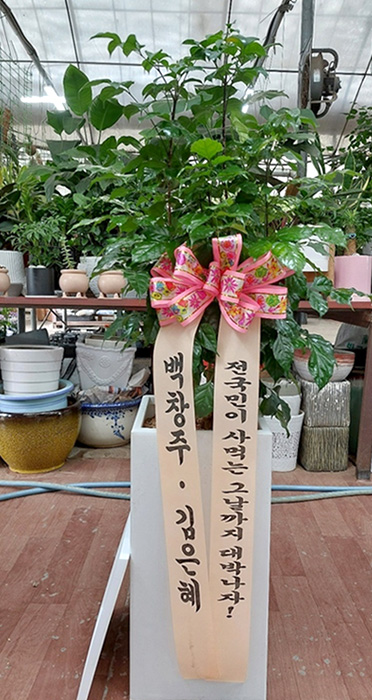 전국민이 사먹는 그날까지 대박나자!
백창주 · 김은혜